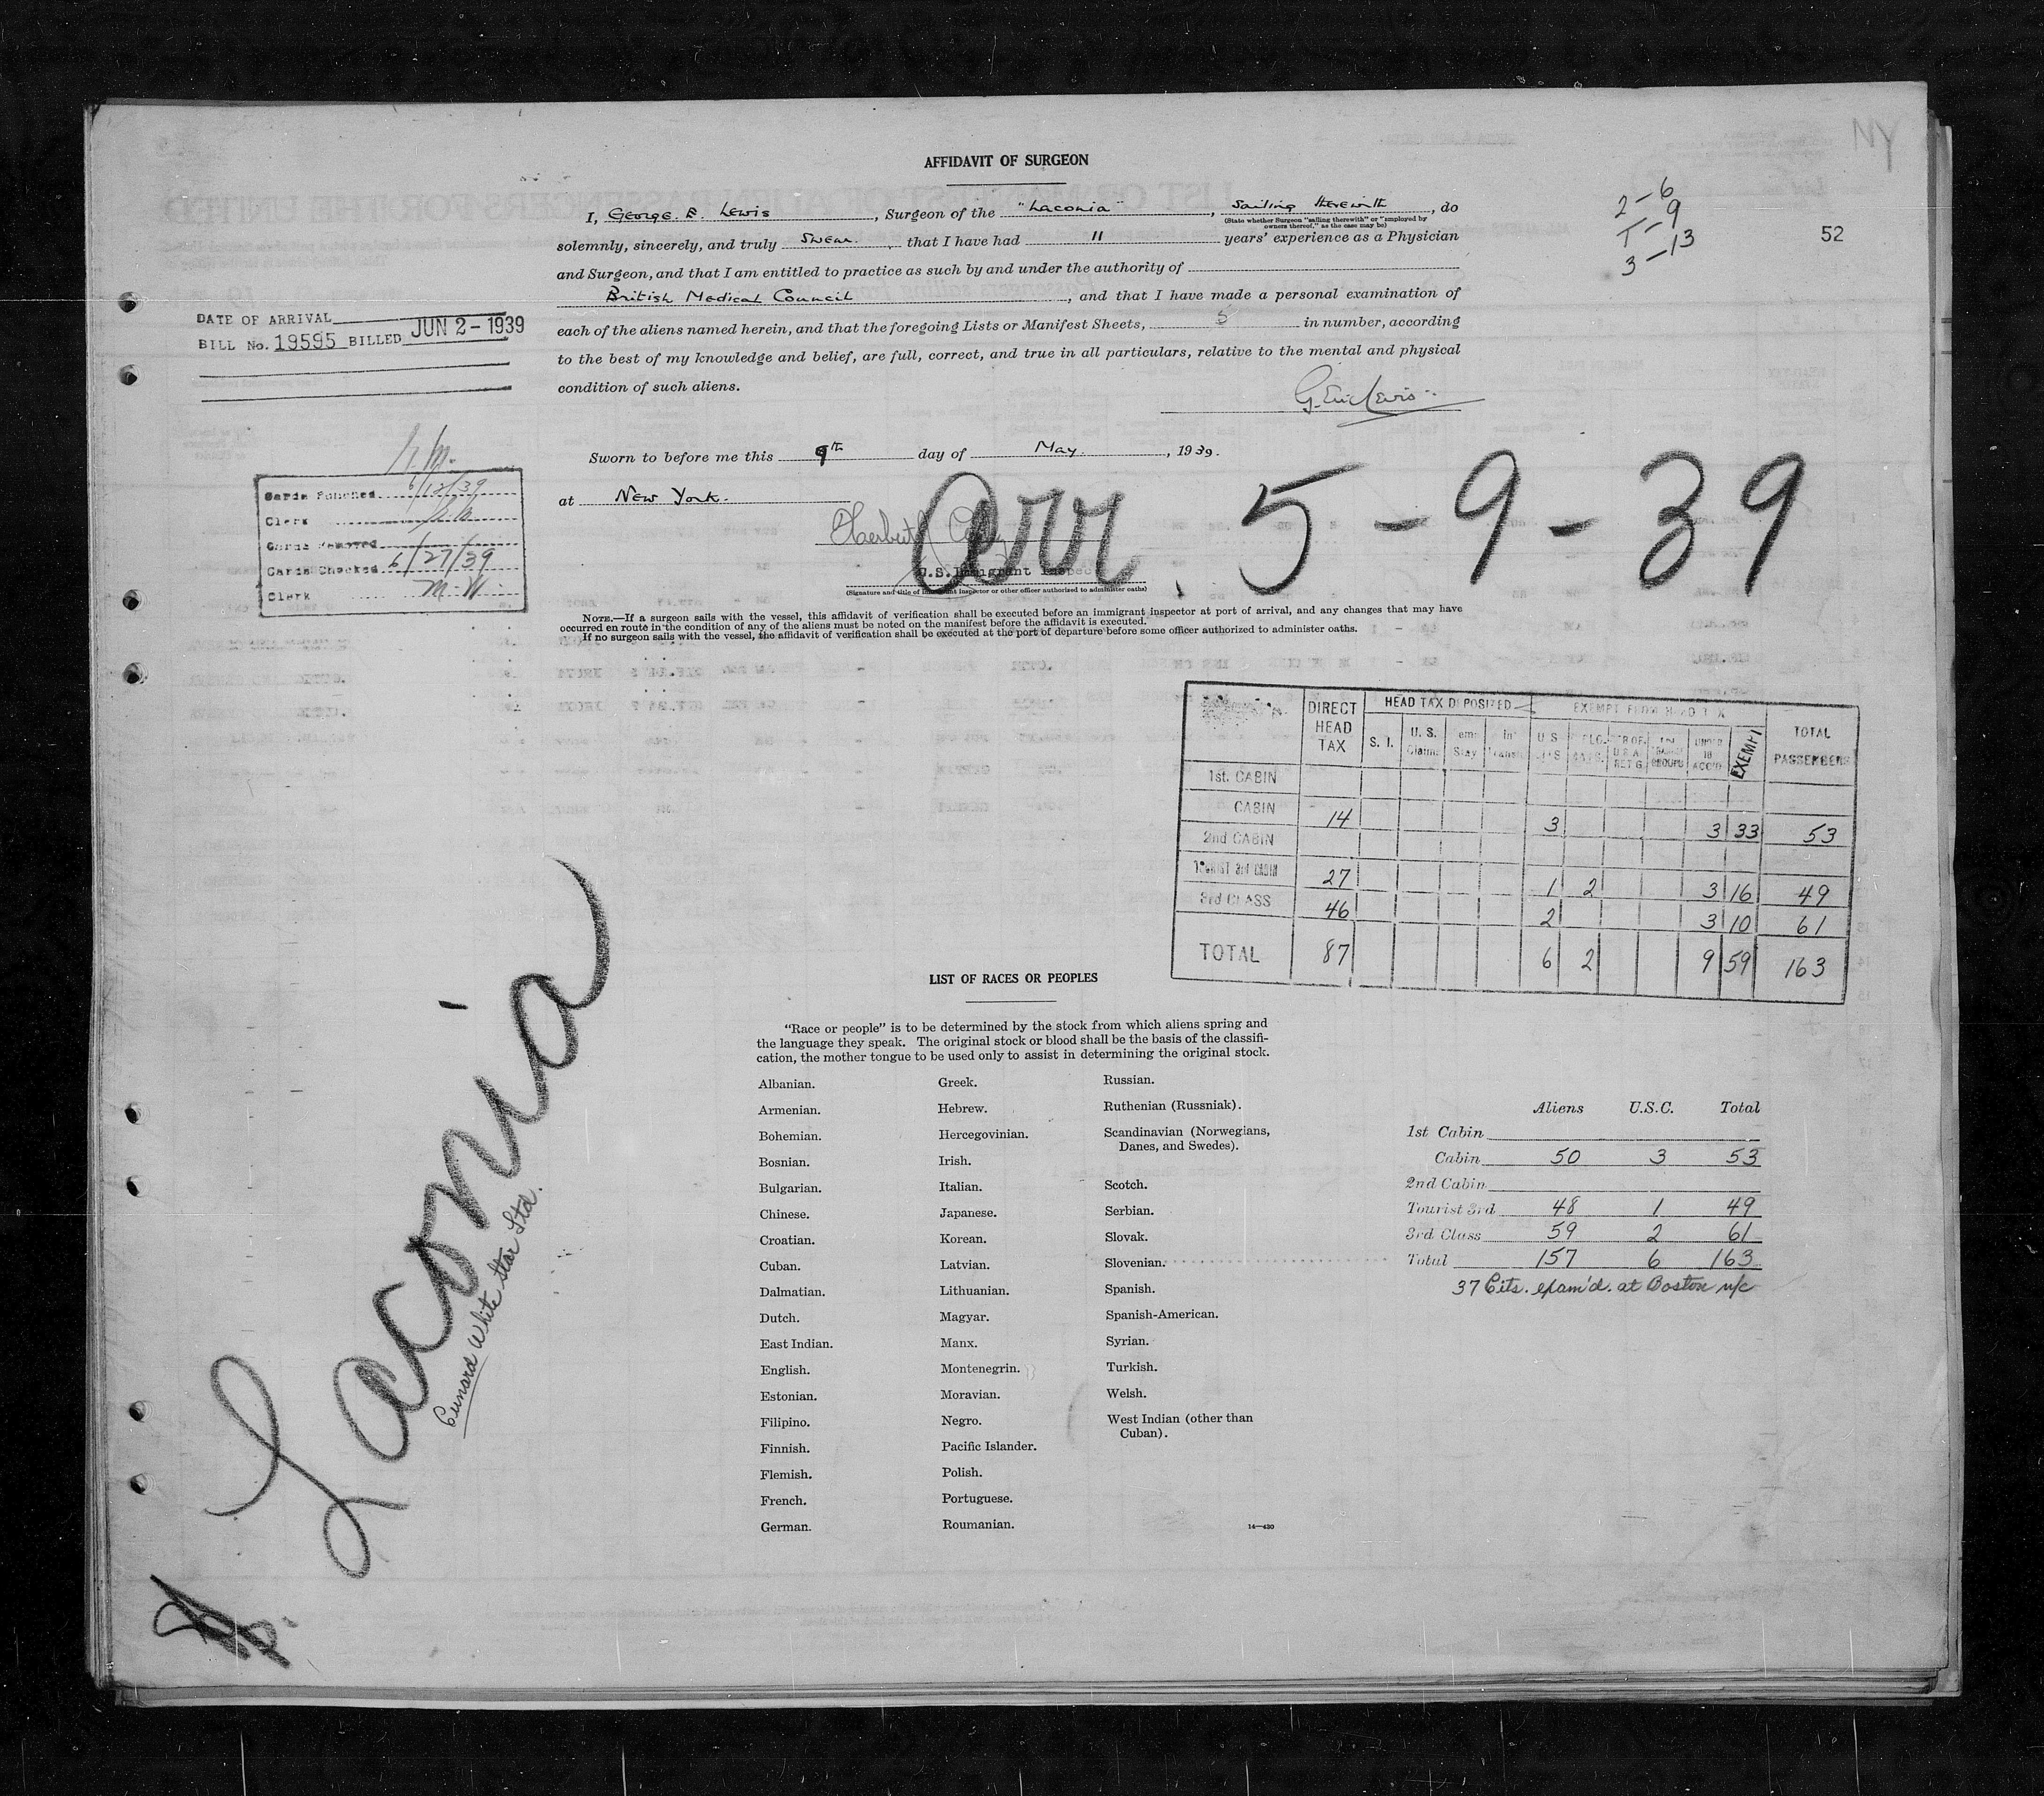 NY
AFFIDAVIT OF SURGEON
2-6
T-9
3-13
52
I, George. E. Lewis, Surgeon of the "Laconia", Sailing therewith, do
(State whether Surgeon "sailing therewith" or "employed by
owners thereof," as the case may be)
solemnly, sincerely, and truly Swear. , that I have had 11 years' experience as a Physician
and Surgeon, and that I am entitled to practice as such by and under the authority of
British Medical Council, and that I have made a personal examination of
each of the aliens named herein, and that the foregoing Lists or Manifest Sheets, 5 in number, according
to the best of my knowledge and belief, are full, correct, and true in all particulars, relative to the mental and physical
condition of such aliens.
G. Eric Lewis
DATE OF ARRIVAL
BILL No. 19595 BILLED JUN 2-1939
Sworn to before me this 9th day of May., 1939.
at New York.
Arr. 5-9-39
U.S. Immigrant Inspec
(Signature and title of immigrant inspector or other officer authorized to administer oaths)
Cards Punched 6/12/39
Clerk
Cards Removed
Cards Checked 6/27/39
Clerk M.W.
NOTE.—If a surgeon sails with the vessel, this affidavit of verification shall be executed before an immigrant inspector at port of arrival, and any changes that may have
occurred en route in the condition of any of the aliens must be noted on the manifest before the affidavit is executed.
If no surgeon sails with the vessel, the affidavit of verification shall be executed at the port of departure before some officer authorized to administer oaths.
DIRECT HEAD TAX HEAD TAX DEPOSITED EXEMPT FROM HEAD TAX TOTAL PASSENGERS
S. I. U. S. Claims Stay in Transit U S UNDER 16 ACC'D EXEMPT
1st. CABIN
CABIN 14 3 3 33 53
2nd CABIN
TOURIST 3rd CABIN 27 1 2 3 16 49
3rd CLASS 46 2 3 10 61
TOTAL 87 6 2 9 59 163
Laconia
Cunard White Star Ltd.
LIST OF RACES OR PEOPLES
"Race or people" is to be determined by the stock from which aliens spring and
the language they speak. The original stock or blood shall be the basis of the classifi-
cation, the mother tongue to be used only to assist in determining the original stock.
Albanian.
Armenian.
Bohemian.
Bosnian.
Bulgarian.
Chinese.
Croatian.
Cuban.
Dalmatian.
Dutch.
East Indian.
English.
Estonian.
Filipino.
Finnish.
Flemish.
French.
German.
Greek.
Hebrew.
Hercegovinian.
Irish.
Italian.
Japanese.
Korean.
Latvian.
Lithuanian.
Magyar.
Manx.
Montenegrin.
Moravian.
Negro.
Pacific Islander.
Polish.
Portuguese.
Roumanian.
Russian.
Ruthenian (Russniak).
Scandinavian (Norwegians,
Danes, and Swedes).
Scotch.
Serbian.
Slovak.
Slovenian.
Spanish.
Spanish-American.
Syrian.
Turkish.
Welsh.
West Indian (other than
Cuban).
14—430
Aliens U.S.C. Total
1st Cabin
Cabin 50 3 53
2nd Cabin
Tourist 3rd 48 1 49
3rd Class 59 2 61
Total 157 6 163
37 Cits. exam'd. at Boston n/c